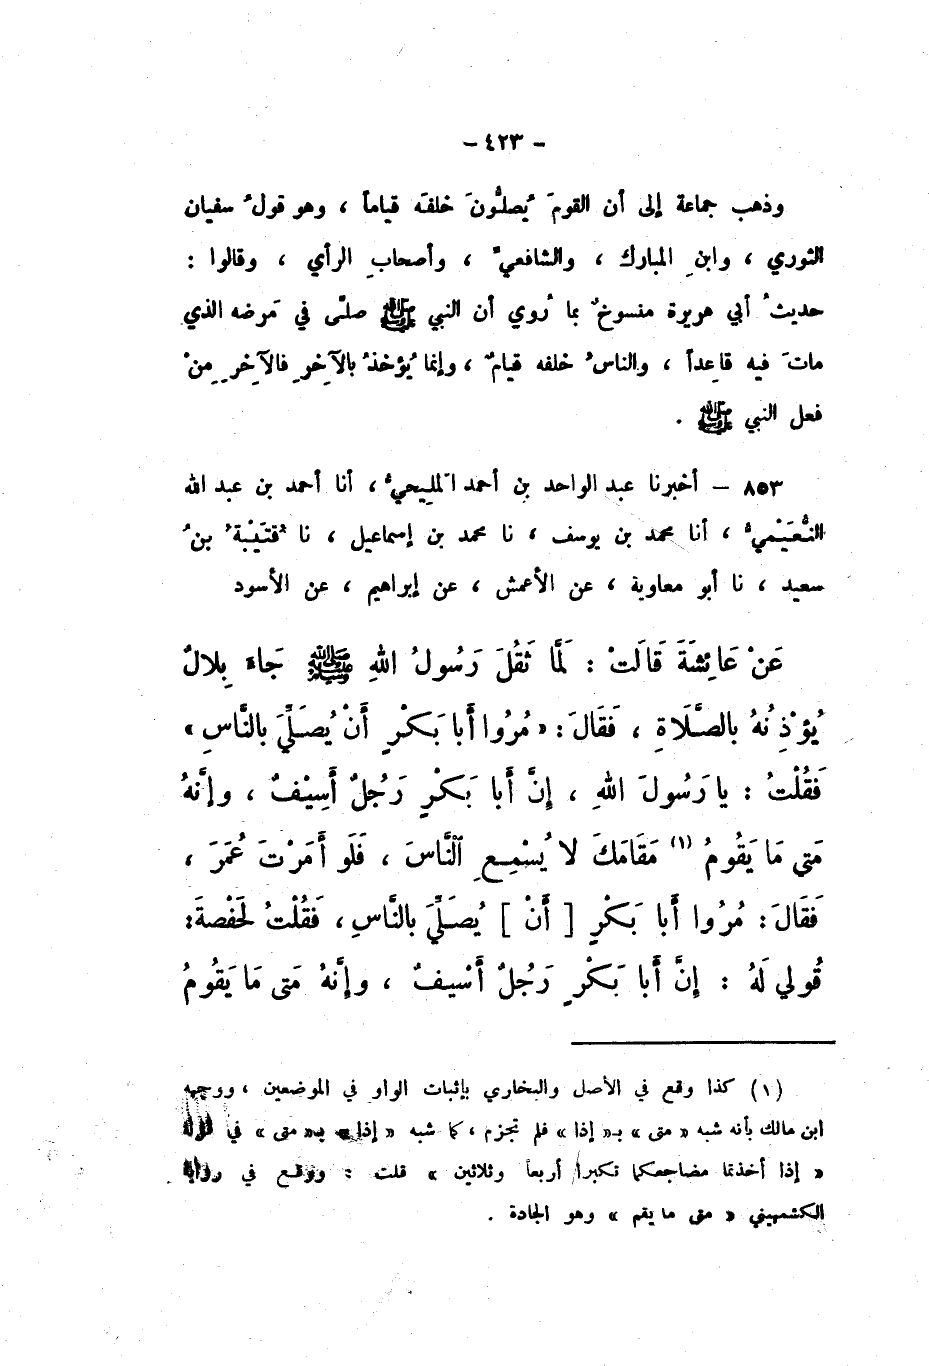 - ٤٢٣ -
وذهب جماعة إلى أن القومَ يُصلُّونَ خلفَه قياماً ، وهو قولُ سفيان
الثوري ، وابنِ المبارك ، والشافعيّ ، وأصحابِ الرأي ، وقالوا :
حديثُ أبي هريرة منسوخٌ بما رُوي أن النبي ﷺ صلَّى في مَرضه الذي
ماتَ فيه قاعِداً ، والناسُ خلفه قيامٌ ، وإنما يُؤخذُ بالآخِرِ فالآخِرِ مِنْ
فعل النبي ﷺ .
٨٥٣ – أخبرنا عبد الواحد بن أحمد المَلِيحيُّ ، أنا أحمد بن عبد الله
النُّعَيْميُّ ، أنا محمد بن يوسف ، نا محمد بن إسماعيل ، نا قُتَيْبةُ بنُ
سعيد ، نا أبو معاوية ، عن الأعمش ، عن إبراهيم ، عن الأسود
عَنْ عَائِشَةَ قَالَتْ : لَمَّا ثَقُلَ رَسُولُ اللهِ ﷺ جَاءَ بِلالٌ
يُؤْذِنُهُ بالصَّلَاةِ ، فَقَالَ : « مُرُوا أَبا بَكْرٍ أَنْ يُصَلِّيَ بالنَّاسِ »
فَقُلْتُ : يا رَسُولَ اللهِ ، إنَّ أَبا بَكْرٍ رَجُلٌ أَسِيْفٌ ، وإنَّهُ
مَتى مَا يَقُومُ (١) مَقَامَكَ لا يُسْمِعِ النَّاسَ ، فَلَو أَمَرْتَ عُمَرَ ،
فَقَالَ : مُرُوا أَبا بَكْرٍ [ أَنْ ] يُصَلِّيَ بالنَّاسِ ، فَقُلْتُ لحَفْصةَ :
قُولي لَهُ : إنَّ أَبا بَكْرٍ رَجُلٌ أَسْيفٌ ، وإنَّهُ مَتى مَا يَقُومُ
(١) كذا وقع في الأصل والبخاري بإثبات الواو في الموضعين ، ووجهه
ابن مالك بأنه شبه « متى » بـ« إذا » فلم تجزم ، كما شبه « إذا » بـ« متى » في قوله
« إذا أخذتما مضاجعكما تكبرا أربعاً وثلاثين » قلت : ووقع في رواية
الكشميهني « متى ما يقم » وهو الجادة .